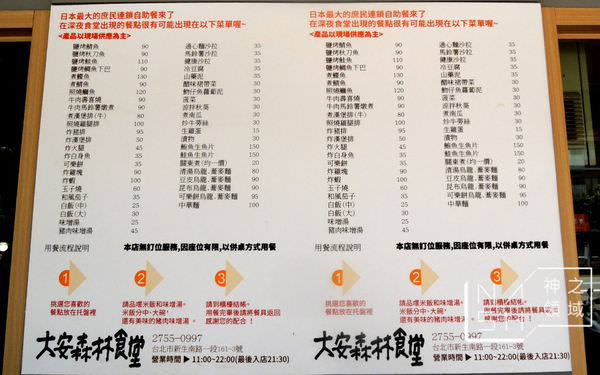 日本最大的庶民連鎖自助餐來了
在深夜食堂出現的餐點很有可能出現在以下菜單喔~
<產品以現場供應為主>
鹽烤鯖魚 90
鹽烤秋刀魚 90
鹽烤鮭魚 110
鹽烤鯛魚下巴 90
煮鰈魚 130
煮鯖魚 90
照燒鱺魚 110
牛肉壽喜燒 90
牛肉馬鈴薯燉煮 90
煮漢堡排(牛) 80
照燒雞腿排 100
炸豬排 95
炸漢堡排 50
炸火腿 45
炸白身魚 35
可樂餅 35
炸雞塊 90
炸蝦 100
玉子燒 60
和風茄子 35
白飯(中) 25
白飯(大) 30
味增湯 25
豬肉味增湯 45
通心麵沙拉 35
馬鈴薯沙拉 35
健康沙拉 35
冷豆腐 35
山藥泥 35
醋味裙帶菜 30
魩仔魚蘿蔔泥 30
菠菜 30
涼拌秋葵 30
煮南瓜 30
炒牛蒡絲 30
生雞蛋 15
漬物 30
鮪魚生魚片 150
鮭魚生魚片 150
關東煮(均一價) 20
清湯烏龍.蕎麥麵 60
豆皮烏龍.蕎麥麵 80
昆布烏龍.蕎麥麵 90
中華麵 100
用餐流程說明
本店無訂位服務,因座位有限,以併桌方式用餐
1
2
3
挑選您喜歡的
餐點放在托盤裡
請品嚐米飯和味增湯。
米飯分中、大碗。
還有美味的豬肉味增湯
請到櫃檯結帳。
用餐完畢後請將餐具返回
感謝您的配合！
大安森林食堂
2755-0997
台北市新生南路一段161-3號
營業時間 ▶ 11:00~22:00(最後入店21:30)
日本最大的庶民連鎖自助餐來了
在深夜食堂出現的餐點很有可能出現在以下菜單喔~
<產品以現場供應為主>
鹽烤鯖魚 90
鹽烤秋刀魚 90
鹽烤鮭魚 110
鹽烤鯛魚下巴 90
煮鰈魚 130
煮鯖魚 90
照燒鱺魚 110
牛肉壽喜燒 90
牛肉馬鈴薯燉煮 90
煮漢堡排(牛) 80
照燒雞腿排 100
炸豬排 95
炸漢堡排 50
炸火腿 45
炸白身魚 35
可樂餅 35
炸雞塊 90
炸蝦 100
玉子燒 60
和風茄子 35
白飯(中) 25
白飯(大) 30
味增湯 25
豬肉味增湯 45
通心麵沙拉 35
馬鈴薯沙拉 35
健康沙拉 35
冷豆腐 35
山藥泥 35
醋味裙帶菜 30
魩仔魚蘿蔔泥 30
菠菜 30
涼拌秋葵 30
煮南瓜 30
炒牛蒡絲 30
生雞蛋 15
漬物 30
鮪魚生魚片 150
鮭魚生魚片 150
關東煮(均一價) 20
清湯烏龍.蕎麥麵 60
豆皮烏龍.蕎麥麵 80
昆布烏龍.蕎麥麵 90
中華麵 100
用餐流程說明
本店無訂位服務,因座位有限,以併桌方式用餐
1
2
3
挑選您喜歡的
餐點放在托盤裡
請品嚐米飯和味增湯。
米飯分中、大碗。
還有美味的豬肉味增湯
請到櫃檯結帳。
用餐完畢後請將餐具返回
感謝您的配合！
大安森林食堂
2755-0997
台北市新生南路一段161-3號
營業時間 ▶ 11:00~22:00(最後入店21:30)
神之領域